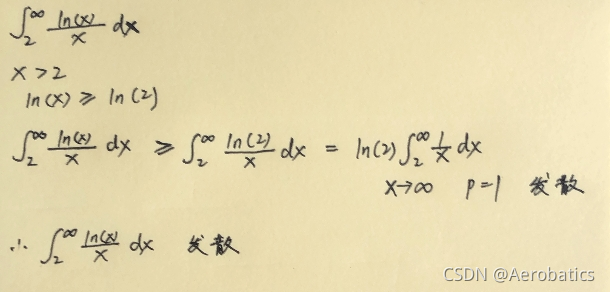 ∫₂^∞ ln(x)/x dx
x > 2
ln(x) ≥ ln(2)
∫₂^∞ ln(x)/x dx ≥ ∫₂^∞ ln(2)/x dx = ln(2) ∫₂^∞ 1/x dx
x→∞ p=1 发散
∴ ∫₂^∞ ln(x)/x dx 发散
CSDN @Aerobatics